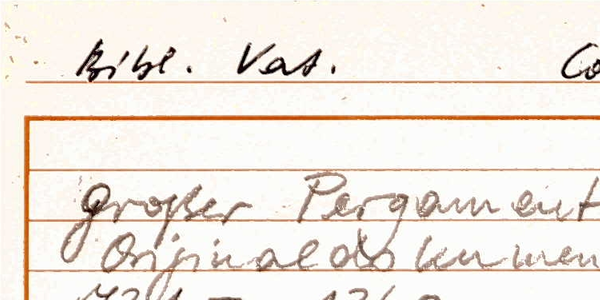 Bibl. Vat. Co
großer Pergament
Originaldokumen